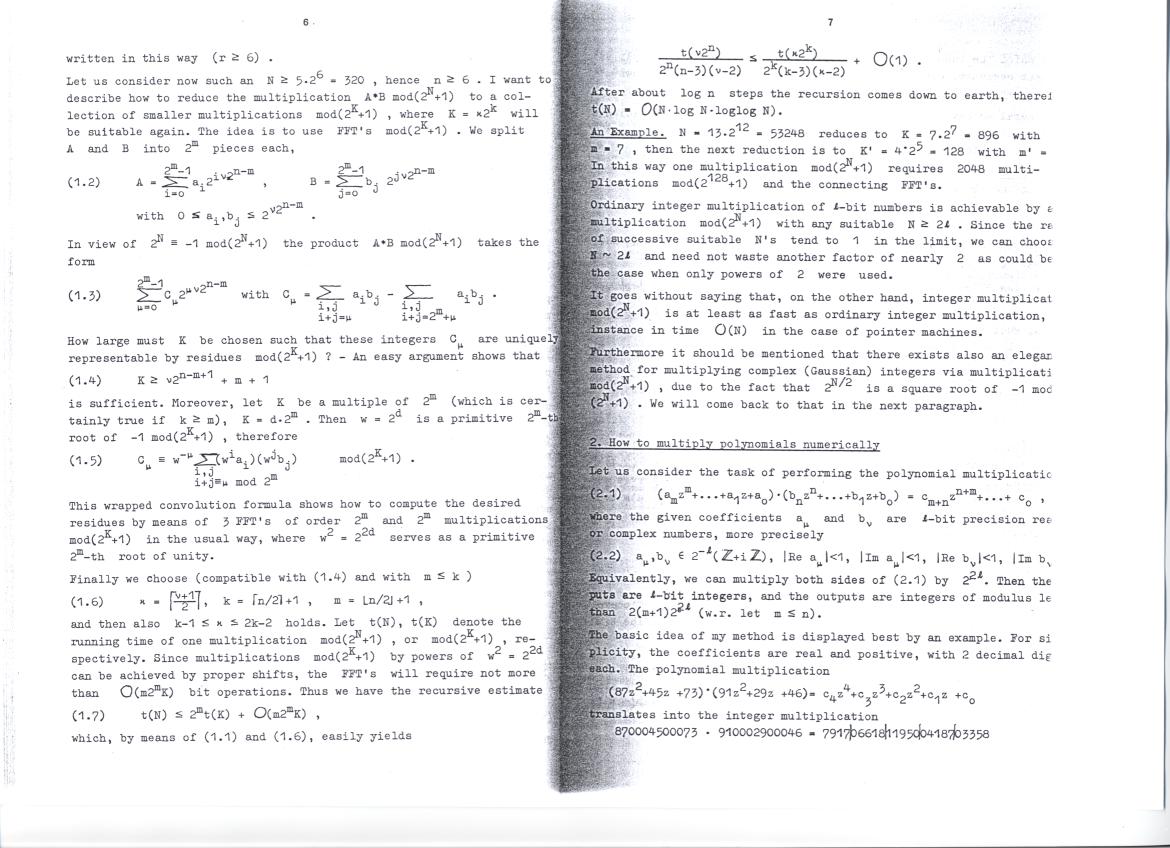 6
written in this way (r ≥ 6) .
Let us consider now such an N ≥ 5·2⁶ = 320 , hence n ≥ 6 . I want to
describe how to reduce the multiplication A*B mod(2^N+1) to a col-
lection of smaller multiplications mod(2^K+1) , where K = ϰ2^k will
be suitable again. The idea is to use FFT's mod(2^K+1) . We split
A and B into 2^m pieces each,
(1.2) A = ∑_{i=0}^{2^m-1} a_i 2^{iν2^{n-m}} , B = ∑_{j=0}^{2^m-1} b_j 2^{jν2^{n-m}}
with 0 ≤ a_i,b_j ≤ 2^{ν2^{n-m}} .
In view of 2^N ≡ -1 mod(2^N+1) the product A*B mod(2^N+1) takes the
form
(1.3) ∑_{μ=0}^{2^m-1} C_μ 2^{μν2^{n-m}} with C_μ = ∑_{i,j i+j=μ} a_i b_j - ∑_{i,j i+j=2^m+μ} a_i b_j .
How large must K be chosen such that these integers C_μ are uniquely
representable by residues mod(2^K+1) ? - An easy argument shows that
(1.4) K ≥ ν2^{n-m+1} + m + 1
is sufficient. Moreover, let K be a multiple of 2^m (which is cer-
tainly true if k ≥ m), K = d·2^m . Then w = 2^d is a primitive 2^m-th
root of -1 mod(2^K+1) , therefore
(1.5) C_μ ≡ w^{-μ} ∑_{i,j i+j≡μ mod 2^m} (w^i a_i)(w^j b_j) mod(2^K+1) .
This wrapped convolution formula shows how to compute the desired
residues by means of 3 FFT's of order 2^m and 2^m multiplications
mod(2^K+1) in the usual way, where w² = 2^{2d} serves as a primitive
2^m-th root of unity.
Finally we choose (compatible with (1.4) and with m ≤ k )
(1.6) ϰ = ⌈(ν+1)/2⌉, k = ⌈n/2⌉+1 , m = ⌊n/2⌋+1 ,
and then also k-1 ≤ ϰ ≤ 2k-2 holds. Let t(N), t(K) denote the
running time of one multiplication mod(2^N+1) , or mod(2^K+1) , re-
spectively. Since multiplications mod(2^K+1) by powers of w² = 2^{2d}
can be achieved by proper shifts, the FFT's will require not more
than O(m2^mK) bit operations. Thus we have the recursive estimate
(1.7) t(N) ≤ 2^m t(K) + O(m2^mK) ,
which, by means of (1.1) and (1.6), easily yields
7
t(ν2^n) / 2^n(n-3)(ν-2) ≤ t(ϰ2^k) / 2^k(k-3)(ϰ-2) + O(1) .
After about log n steps the recursion comes down to earth, theref
t(N) = O(N·log N·loglog N).
An Example. N = 13·2^12 = 53248 reduces to K = 7·2^7 = 896 with
m = 7 , then the next reduction is to K' = 4·2^5 = 128 with m' =
In this way one multiplication mod(2^N+1) requires 2048 multi-
plications mod(2^128+1) and the connecting FFT's.
Ordinary integer multiplication of ℓ-bit numbers is achievable by a
multiplication mod(2^N+1) with any suitable N ≥ 2ℓ . Since the ra
of successive suitable N's tend to 1 in the limit, we can choos
N ~ 2ℓ and need not waste another factor of nearly 2 as could be
the case when only powers of 2 were used.
It goes without saying that, on the other hand, integer multiplicat
mod(2^N+1) is at least as fast as ordinary integer multiplication,
instance in time O(N) in the case of pointer machines.
Furthermore it should be mentioned that there exists also an elegan
method for multiplying complex (Gaussian) integers via multiplicati
mod(2^N+1) , due to the fact that 2^{N/2} is a square root of -1 mod
(2^N+1) . We will come back to that in the next paragraph.
2. How to multiply polynomials numerically
Let us consider the task of performing the polynomial multiplicatio
(2.1) (a_m z^m+...+a_1 z+a_0)·(b_n z^n+...+b_1 z+b_0) = c_{m+n} z^{n+m}+...+ c_0 ,
where the given coefficients a_μ and b_ν are ℓ-bit precision rea
or complex numbers, more precisely
(2.2) a_μ,b_ν ∈ 2^{-ℓ}(ℤ+i ℤ), |Re a_μ|<1, |Im a_μ|<1, |Re b_ν|<1, |Im b_ν
Equivalently, we can multiply both sides of (2.1) by 2^{2ℓ}. Then the
puts are ℓ-bit integers, and the outputs are integers of modulus le
than 2(m+1)2^{2ℓ} (w.r. let m ≤ n).
The basic idea of my method is displayed best by an example. For si
plicity, the coefficients are real and positive, with 2 decimal dig
each. The polynomial multiplication
(87z²+45z +73)·(91z²+29z +46)= c_4 z⁴+c_3 z³+c_2 z²+c_1 z +c_0
translates into the integer multiplication
870004500073 · 910002900046 = 7917|06618|11950|04187|03358